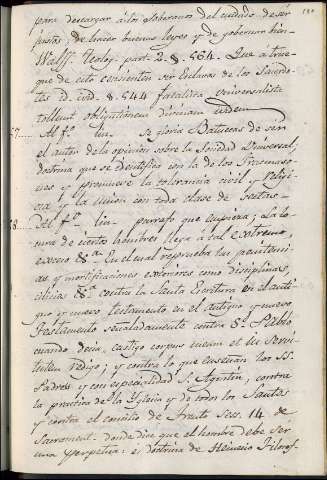 para descargar á los soberanos del cuidado de ser
justos, de hacer buenas leyes y de gobernar bien
Wolff. theolog. part. 2. §. 564. Que á true-
que de esto consienten ser esclavos de los Sacerdo-
tes id. ibid. §. 544 fatalista universalista
tollunt obligationem divinam
57. Al fº. se gloria de ser
el autor de la opinion sobre la Sociedad Universal;
doctrina que se identifica con la de los Fracmaso-
nes y promueve la tolerancia civil, y religio-
sa y la union con toda clase de sectas.
58. Del fº. parrafo que empieza: La lo-
cura de ciertos hombres llega á tal extremo,
exceso &ª. En el cual reprueba las peniten-
cias y mortificaciones exteriores como disciplinas,
cilicios &ª contra la Santa Escritura en el anti-
guo y nuevo testamento en el antiguo y nuevo
testamento señaladamente contra Sn. Pablo
cuando decia, castigo corpus meum et in servi-
tutem redigo; y contra lo que enseñan los SS.
Padres y con especialidad S. Agustin, contra
la practica de la Yglesia y de todos los Santos
y contra el concilio de Trento Sess. 14. de
Sacrament. donde dice que el hombre debe ser
una perpetua: es doctrina de Heinecio Filosof-